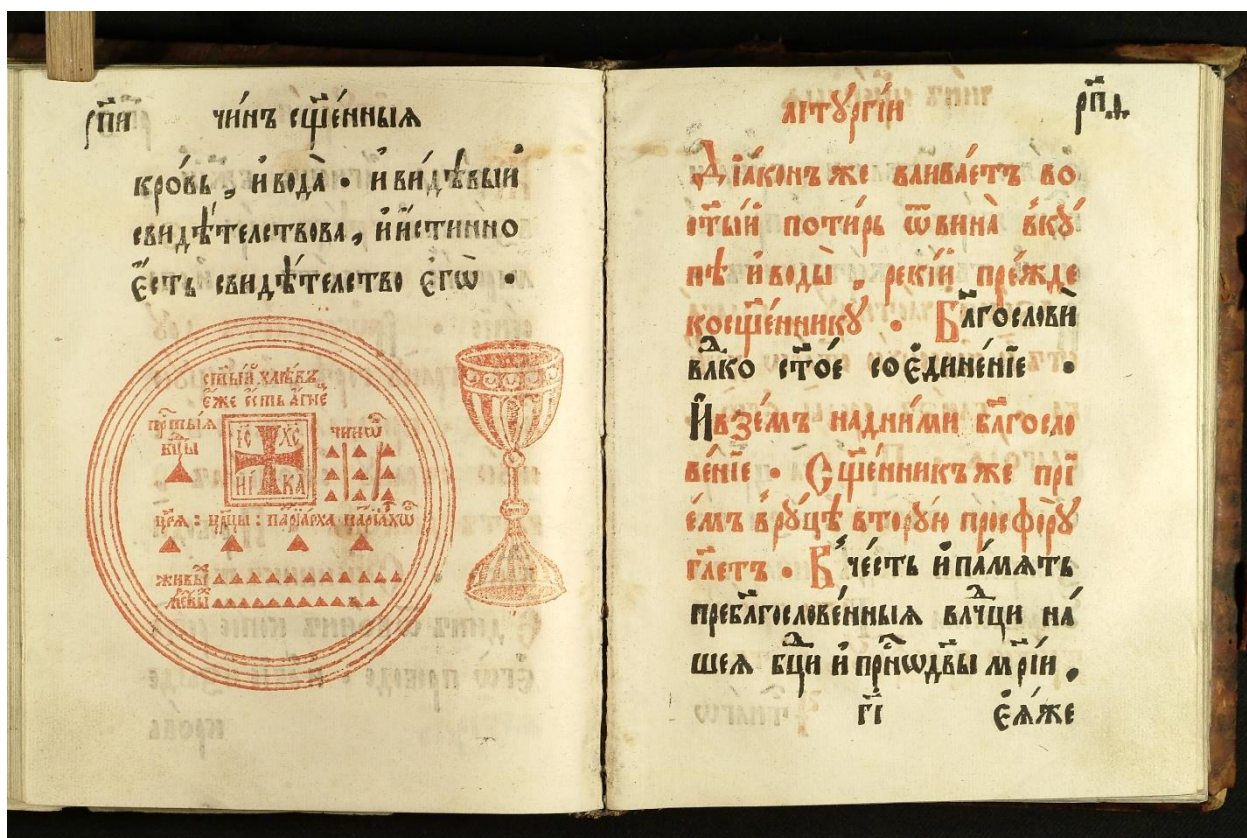 рп҃и чи́нъ сщ҃е́нныѧ
кро́вь , и҆ вода̀ • и҆ ви́дѣвый
свидѣ́телствова , и҆ и҆́стинно
є҆́сть свидѣ́телство є҆гѡ̀ •
ст҃ы́й хлѣ́бъ
є҆́же є҆́сть а҆́гнє
пр҃ты́ѧ
бц҃ы
І҆С ХС
НИ КА
чинѡ̑
цр҃ѧ̀ : цр҃цы : патрїа́рха
живы̑
ме́ртвы̑
лїтꙋргі́и рп҃ѳ
Дїа́конъ же влива́етъ во
ст҃ы́й поти́рь ѿ вина̀ вкꙋ́
пѣ и҆ воды̀ . реки́й пре́жде
ко сщ҃е́нникꙋ • Бл҃гословѝ
влⷣко ст҃о́е соедине́нїе •
И҆ взе́мъ над ни́ми бл҃госло
ве́нїе • Сщ҃е́нникъ же прїе́
е́мъ в рꙋ́цѣ вторꙋ́ю просфорꙋ̀
гл҃етъ • В че́сть и҆ па́мять
пребл҃гослове́нныѧ влⷣчци на́
шеѧ бцⷣи и҆ при҇ѡдв҃ы мр҃і́и .
г҃і є҆ѧ́же